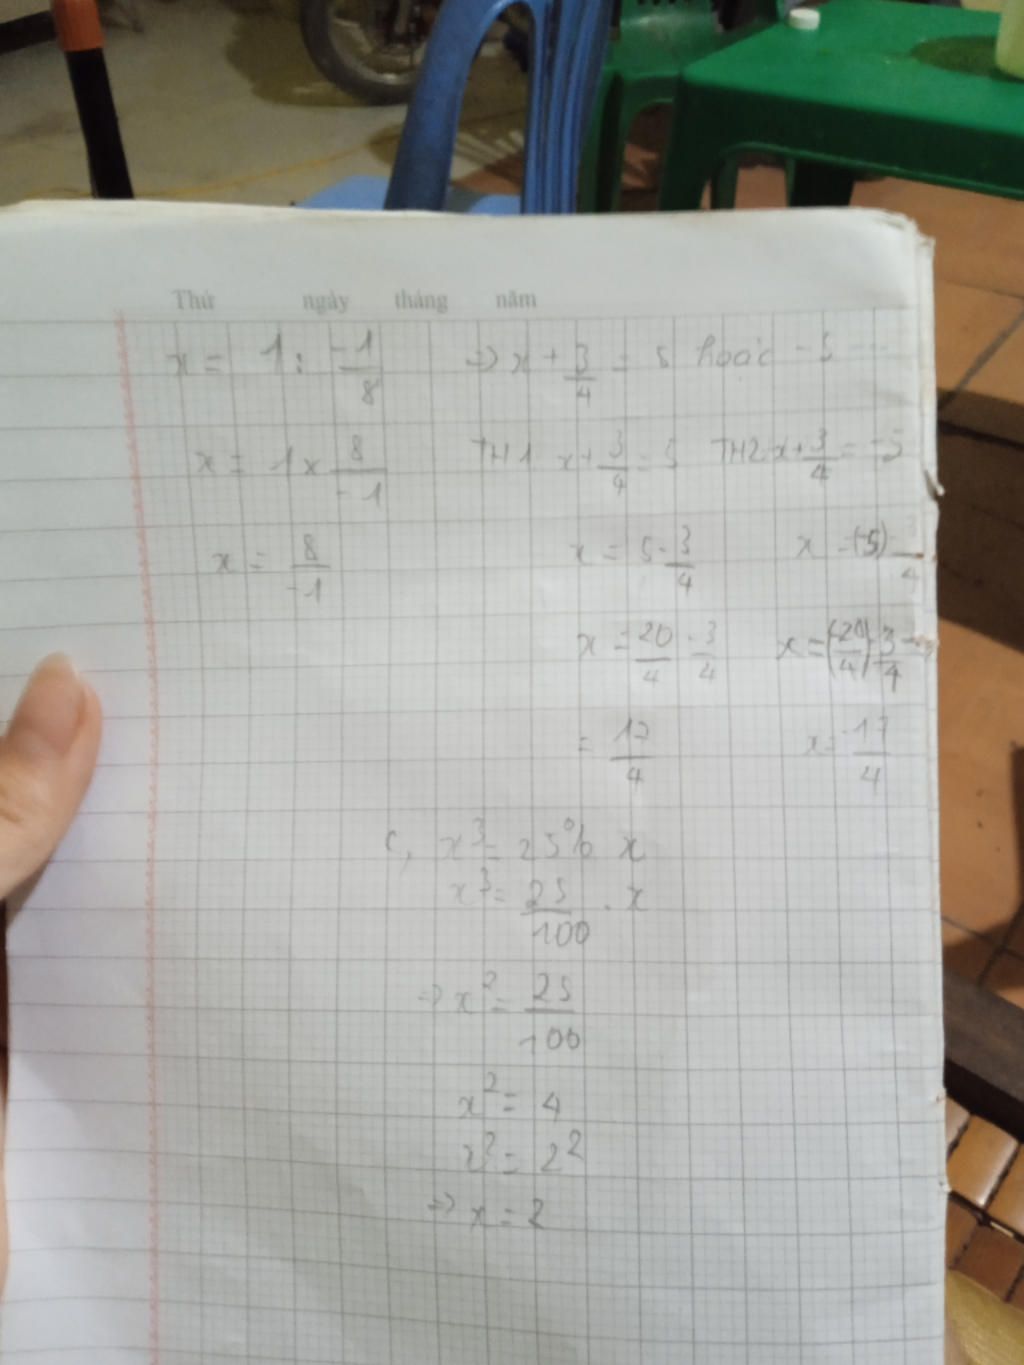 Thứ ngày tháng năm
x = 1 : -1/8
x = 1 × 8/-1
x = 8/-1
=> x + 3/4 = 5 hoặc -5
TH1 x + 3/4 = 5
x = 5 - 3/4
x = 20/4 - 3/4
= 17/4
TH2 x + 3/4 = -5
x = (-5) - 3/4
x = (-20/4) - 3/4
x = -17/4
c, x³ = 25% x
x³ = 25/100 . x
=> x² = 25/100
x² = 4
x² = 2²
=> x = 2